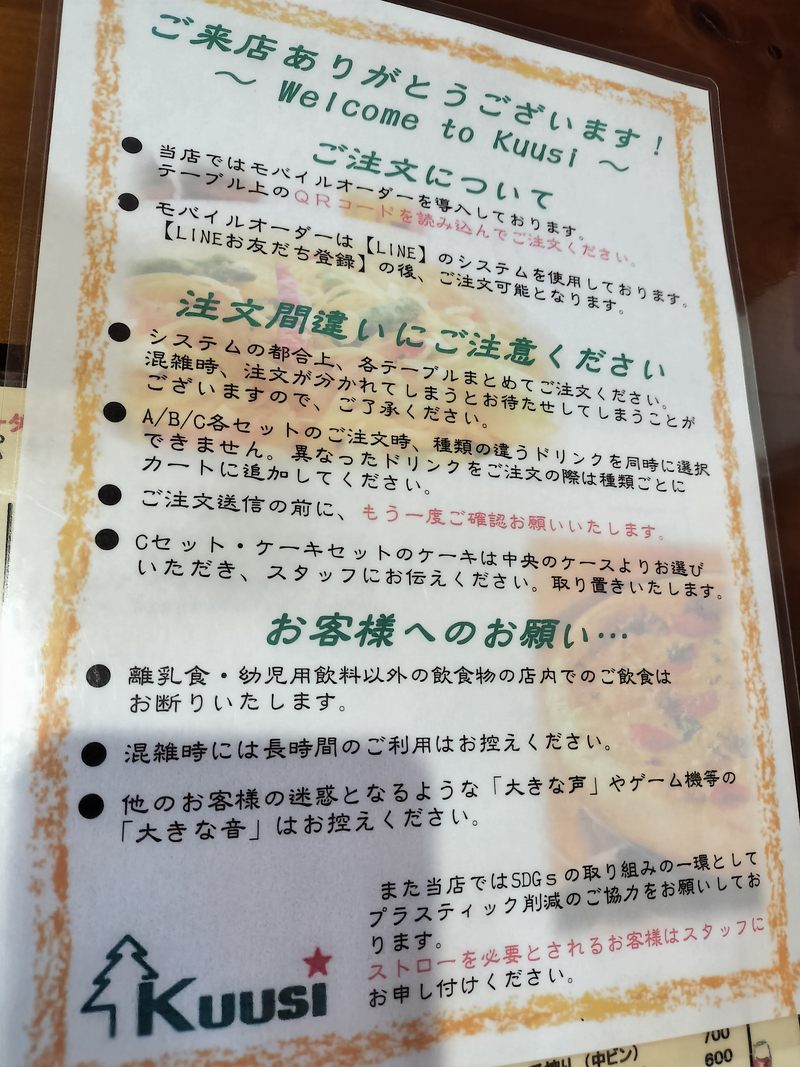 ご来店ありがとうございます！
～ Welcome to Kuusi ～
ご注文について
● 当店ではモバイルオーダーを導入しております。
テーブル上のQRコードを読み込んでご注文ください。
● モバイルオーダーは【LINE】のシステムを使用しております。
【LINEお友だち登録】の後、ご注文可能となります。
注文間違いにご注意ください
● システムの都合上、各テーブルまとめてご注文ください。
混雑時、注文が分かれてしまうとお待たせしてしまうことが
ございますので、ご了承ください。
● A/B/C各セットのご注文時、種類の違うドリンクを同時に選択
できません。異なったドリンクをご注文の際は種類ごとに
カートに追加してください。
● ご注文送信の前に、もう一度ご確認お願いいたします。
● Cセット・ケーキセットのケーキは中央のケースよりお選び
いただき、スタッフにお伝えください。取り置きいたします。
お客様へのお願い…
● 離乳食・幼児用飲料以外の飲食物の店内でのご飲食は
お断りいたします。
● 混雑時には長時間のご利用はお控えください。
● 他のお客様の迷惑となるような「大きな声」やゲーム機等の
「大きな音」はお控えください。
また当店ではSDGsの取り組みの一環として
プラスティック削減のご協力をお願いしてお
ります。
ストローを必要とされるお客様はスタッフに
お申し付けください。
KUUSI
（中ビン） 700
600